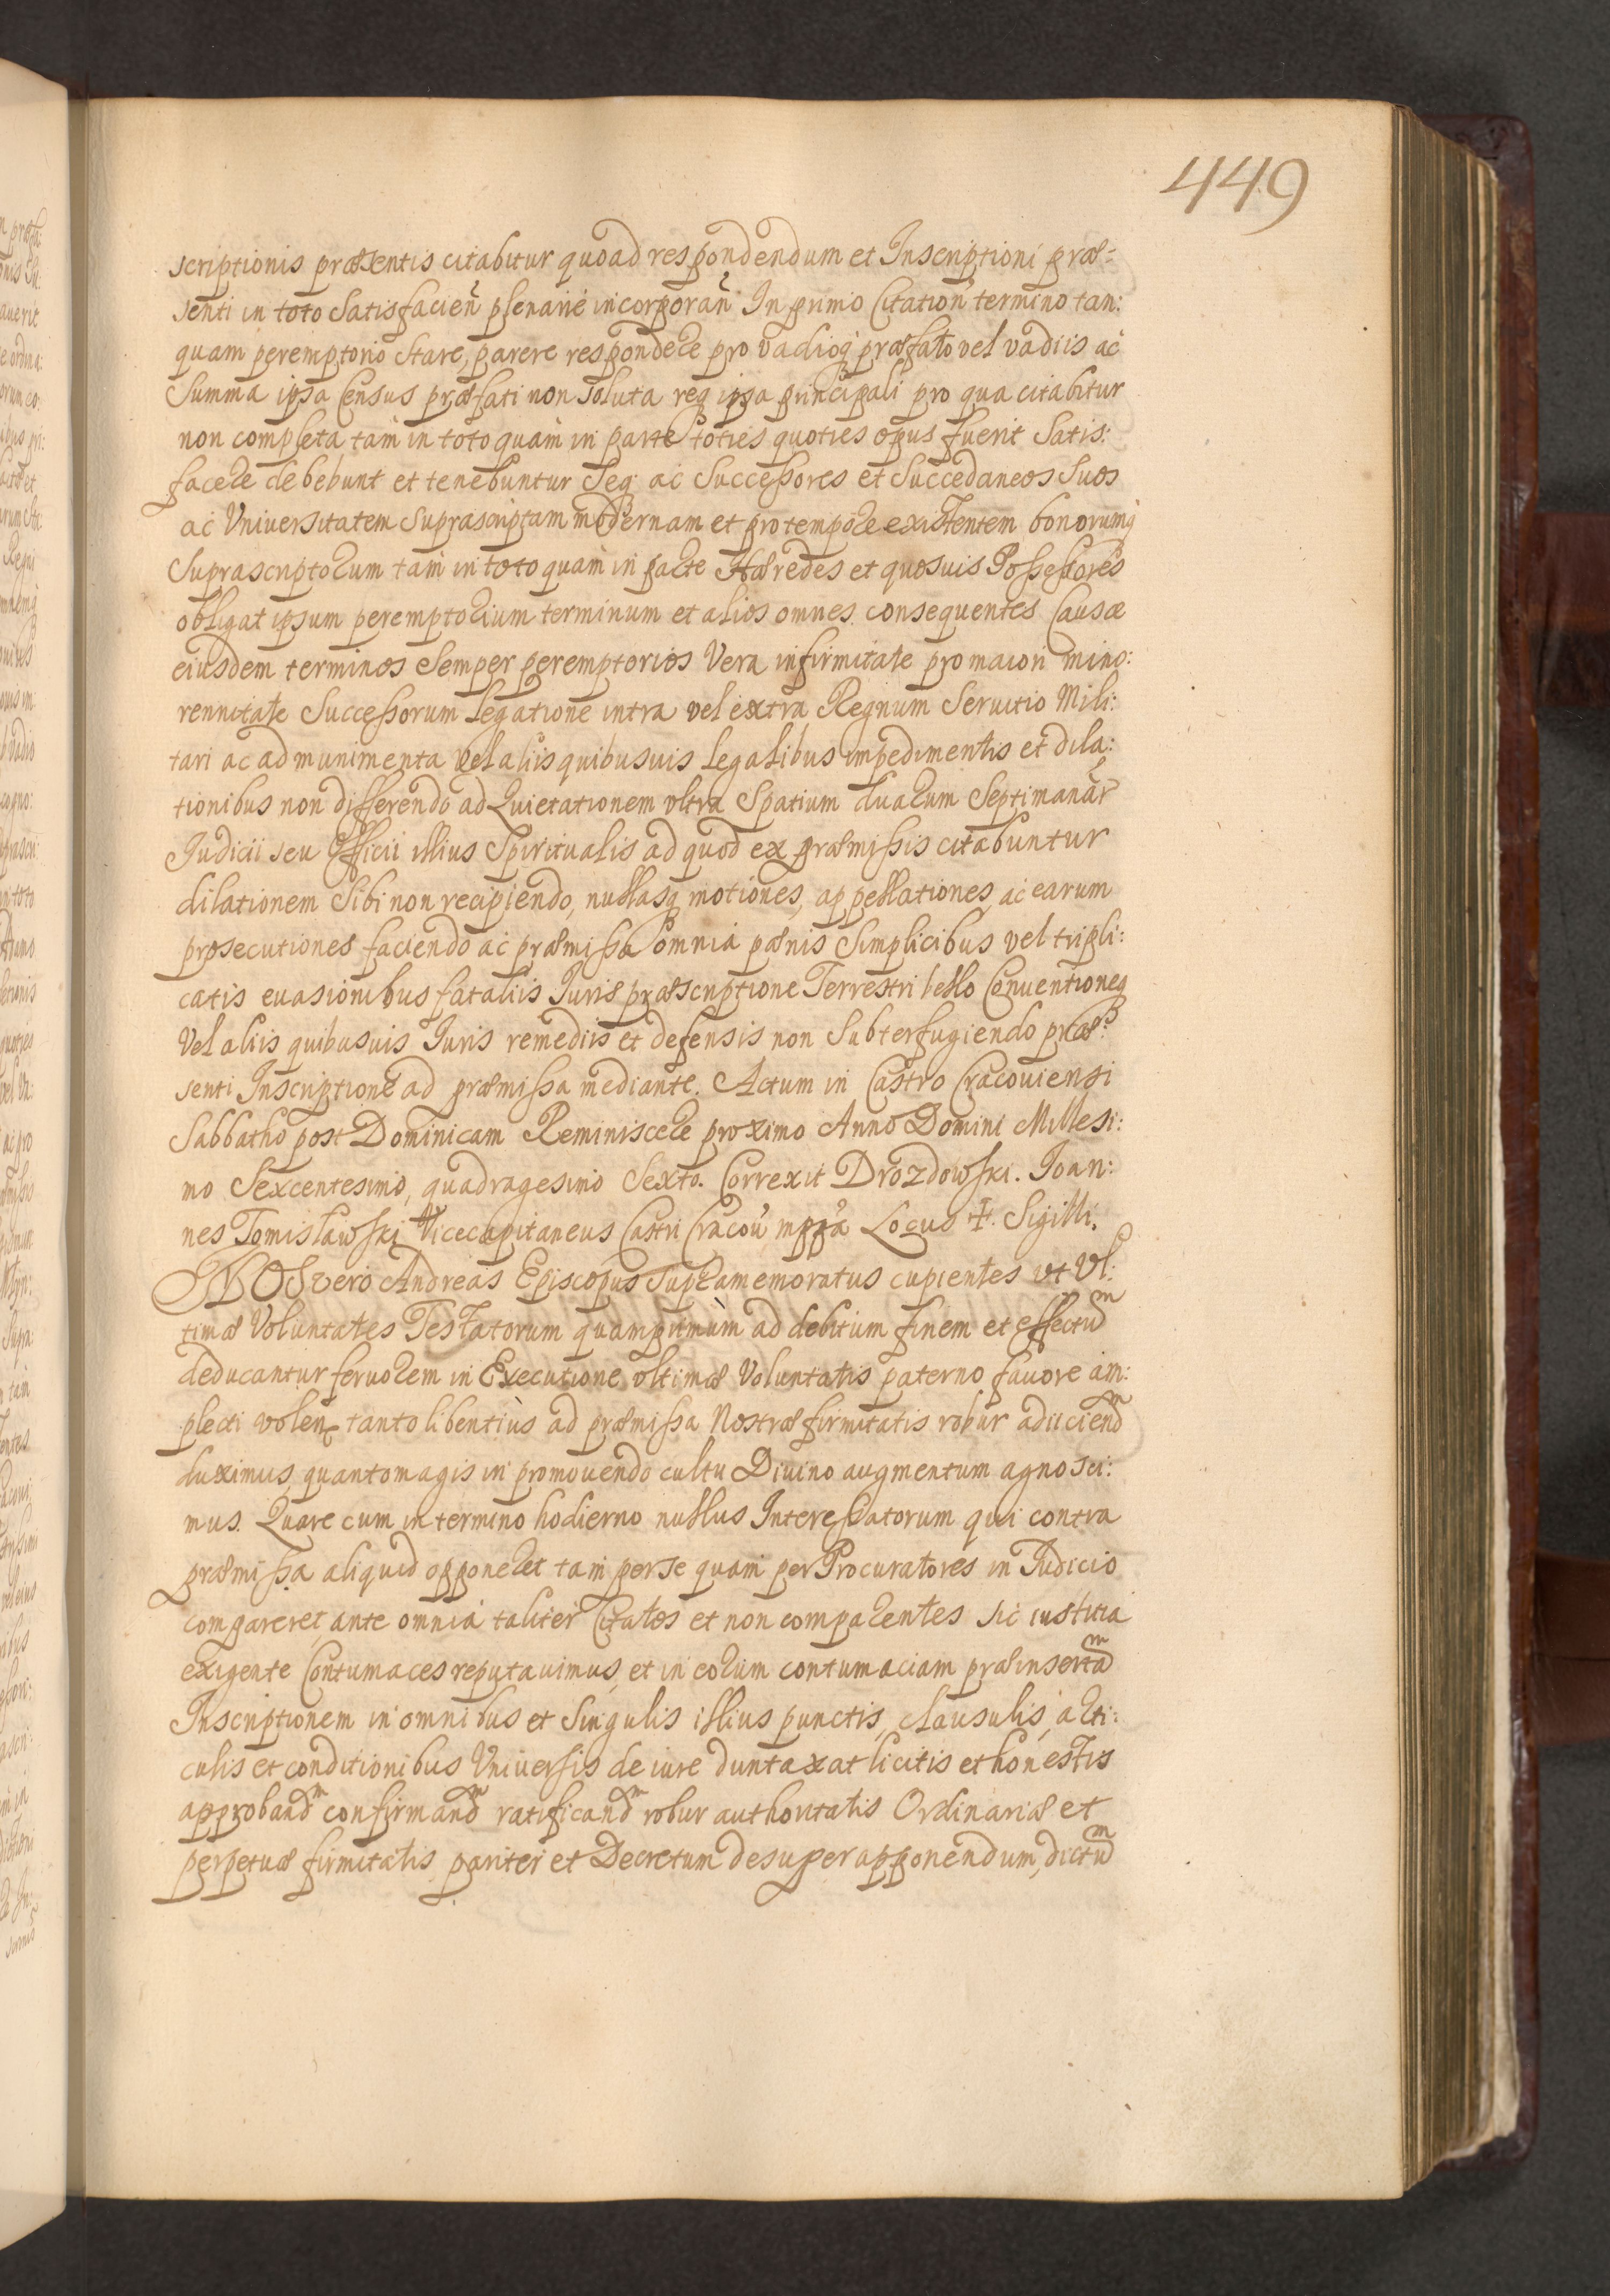 449
scriptionis præsentis citabitur quoad respondendum et Inscriptioni præ-
senti in toto Satisfacien̄ plenarie incorporan̄ In primo Citation̄ termino tan:
quam peremptorio Stare, parere respondere pro vadioq præfato vel vadiis ac
Summa ipsa Census præfati non soluta req ipsa principali pro qua citabitur
non completa tam in toto quam in parte toties quoties opus fuerit Satis:
facere debebunt et tenebuntur Seq ac Successores et Succedaneos Suos
ac Vniuersitatem Suprascriptam modernam et pro tempore existentem bonorumq
Suprascriptorum tam in toto quam in parte Hæredes et quosuis Possessores
obligat ipsum peremptorium terminum et alios omnes consequentes Causæ
eiusdem terminos Semper peremptorios Vera infirmitate pro maiori mino:
rennitate Successorum Legatione intra vel extra Regnum Seruitio Mili:
tari ac ad munimenta Vel aliis quibusuis Legalibus impedimentis et dila:
tionibus non differendo ad Quietationem vltra Spatium duarum Septimanar̄
Judicii seu Officii illius Spiritualis ad quod ex præmissis citabuntur
dilationem Sibi non recipiendo, nullasq motiones, appellationes, ac earum
prosecutiones faciendo ac præmissa omnia pænis Simplicibus vel tripli:
catis euasionibus fataliis Juris præscriptione Terrestri bello Conuentioneq
Vel aliis quibusuis Juris remediis et defensis non Subterfugiendo præ:
senti Inscriptione ad præmissa mediante. Actum in Castro Cracouiensi
Sabbatho post Dominicam Reminiscere proximo Anno Domini Millesi:
mo Sexcentesimo, quadragesimo Sexto. Correxit Drozdowski. Joan:
nes Tomisławski Vicecapitaneus Castri Cracou̅ mppa Locus ‡. Sigilli.
NOS vero Andreas Episcopus Supramemoratus cupientes vt Vl:
timæ Voluntates Testatorum quamprimùm ad debitum finem et effectum
deducantur feruorem in Executione vltimæ Voluntatis paterno fauore am:
plecti volen̄ tanto libentiùs ad præmissa Nostræ firmitatis robur adiiciendm
duximus, quanto magis in promouendo cultu Diuino augmentum agnosci:
mus. Quare cum in termino hodierno nullus Interessatorum qui contra
præmissa aliquid opponeret tam per se quam per Procuratores in Judicio
compareret, ante omnia taliter Citatos et non comparentes sic iustitia
exigente Contumaces reputauimus, et in eorum contumaciam præinsertam
Inscriptionem in omnibus et Singulis illius punctis, clausulis, arti:
culis et conditionibus Vniuersis de iure duntaxat licitis et honestis
approbandm confirmandm ratificandm robur authoritatis Ordinariæ et
perpetuæ firmitatis pariter et Decretum desuper apponendum, dictum